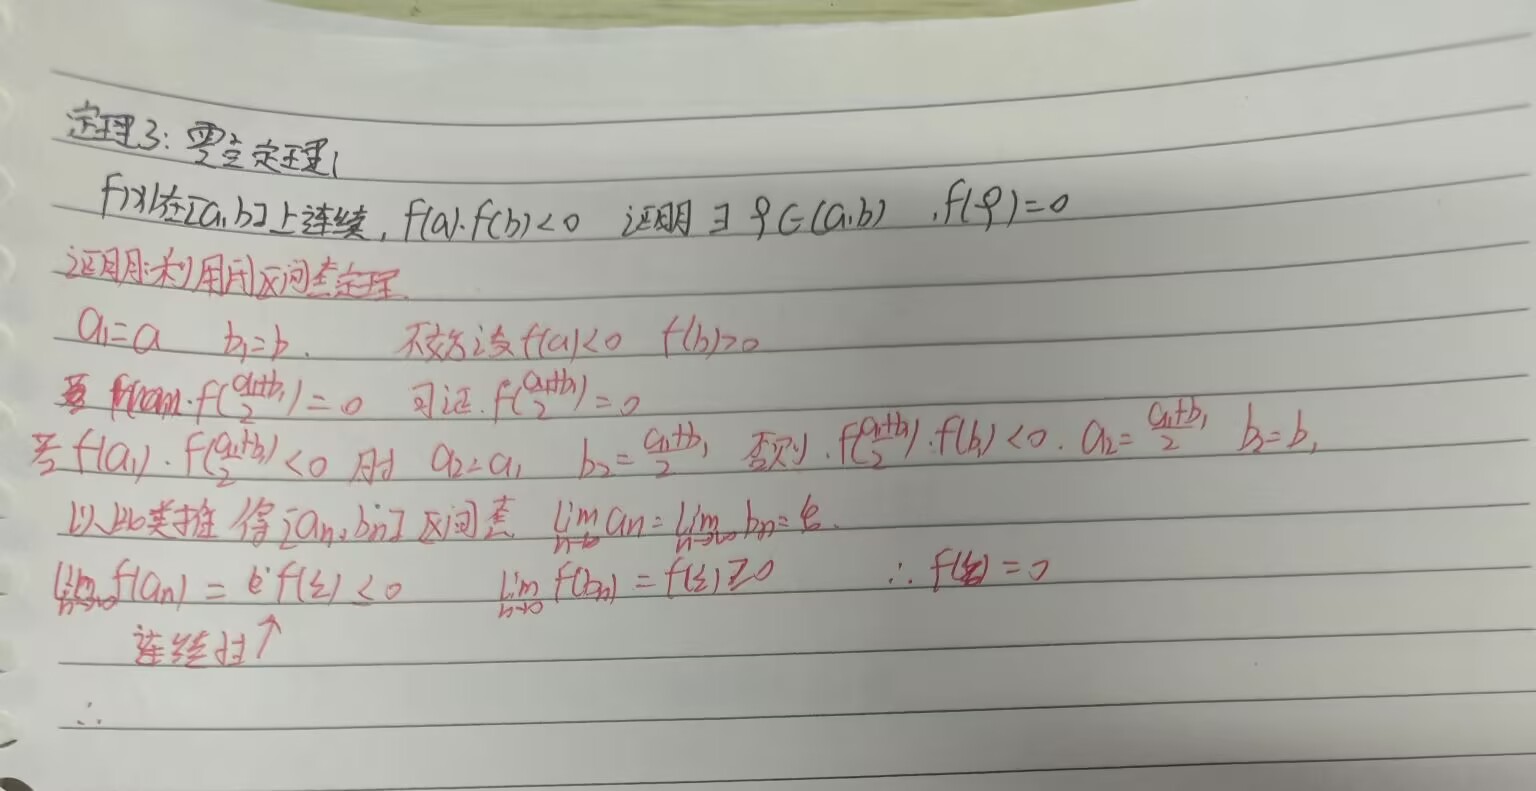 定理3:零点定理
f(x)在[a,b]上连续,f(a)·f(b)<0 证明 ∃ φ∈(a.b) ,f(φ)=0
证明:利用闭区间套定理
a₁=a b₁=b. 不妨设f(a)<0 f(b)>0
f((a₁+b₁)/2)=0 可证.f((a₁+b₁)/2)=0
若f(a₁)·f((a₁+b₁)/2)<0 时 a₂=a₁ b₂=(a₁+b₁)/2 否则.f((a₁+b₁)/2)·f(b₁)<0. a₂=(a₁+b₁)/2 b₂=b₁
以此类推 得[an,bn]区间套 lim n→∞ an=lim n→∞ bn=ξ.
lim n→∞ f(an)=f(ξ)<0 lim n→∞ f(bn)=f(ξ)≥0 ∴f(ξ)=0
连续性↑
∴